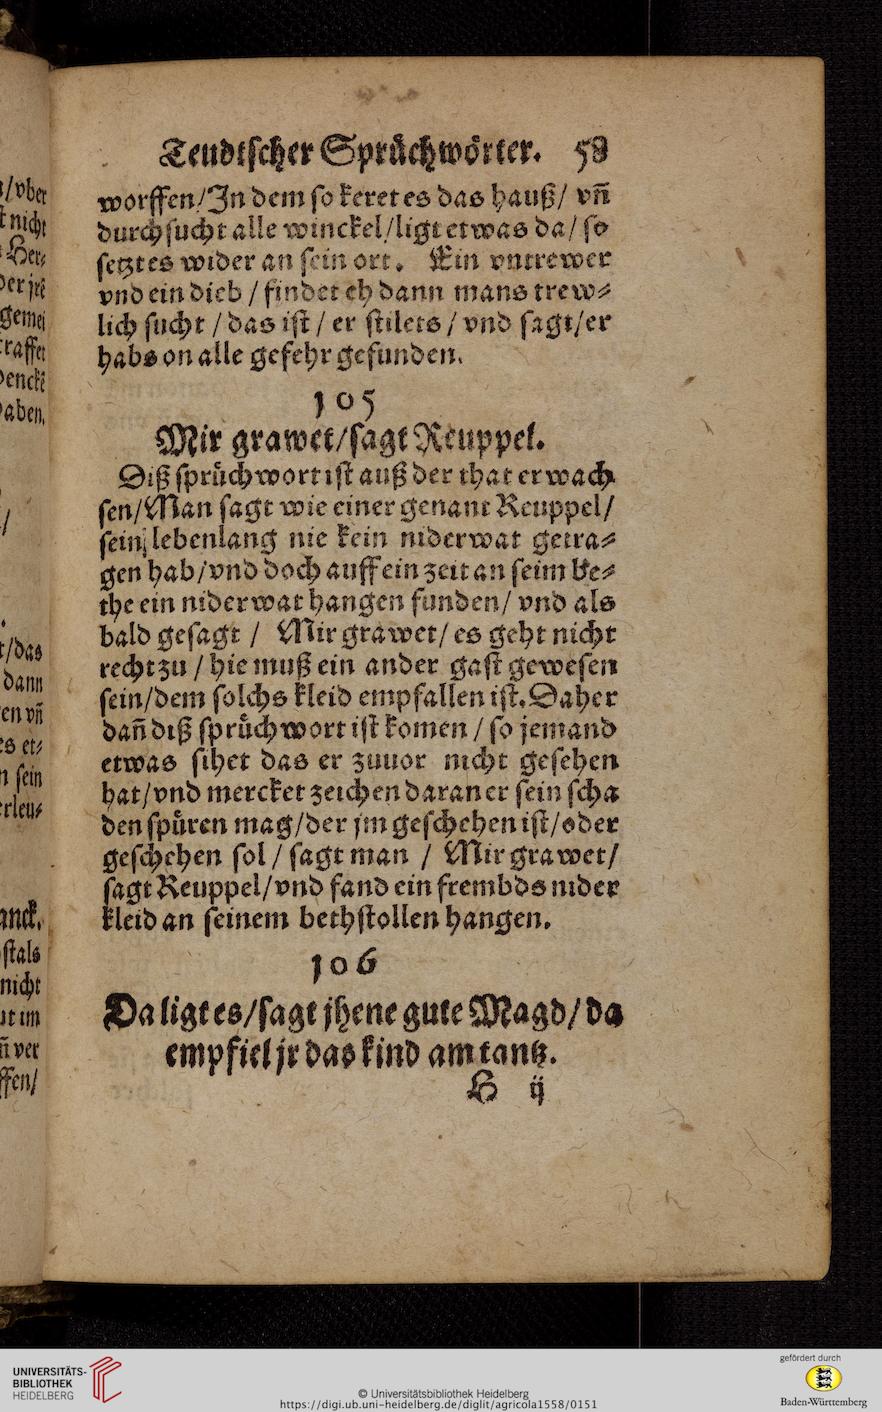 Teudtscher Sprůchwörter. 58
worffen/In dem so keret es das hauß/ vñ
durchsucht alle winckel/ligt etwas da/ so
setzt es wider an sein ort. Ein vntrewer
vnd ein dieb / findet eh dann mans trew⸗
lich sucht / das ist / er stilets / vnd sagt/er
habs on alle gefehr gefunden.
105
Mir grawet/sagt Reuppel.
Diß sprüchwort ist auß der that erwach
sen/Man sagt wie einer genant Reuppel/
sein lebenlang nie kein niderwat getra⸗
gen hab/vnd doch auff ein zeit an seim be⸗
the ein niderwat hangen funden/ vnd als
bald gesagt / Mir grawet/ es geht nicht
recht zu / hie muß ein ander gast gewesen
sein/dem solchs kleid empfallen ist. Daher
dañ diß sprüchwort ist komen / so jemand
etwas sihet das er zuuor nicht gesehen
hat/vnd mercket zeichen daran er sein scha
den spüren mag/der jm geschehen ist/oder
geschehen sol / sagt man / Mir grawet/
sagt Reuppel/vnd fand ein frembds nider
kleid an seinem bethstollen hangen.
106
Da ligt es/sagt jhene gute Magd/ da
empfiel jr das kind am tantz.
H ij
/vber
nicht
Her⸗
der jrē
gemei
raffet
enckē
aben.
/das
dann
en vñ
es et⸗
n sein
rleu⸗
anck.
stals
nicht
ut im
ñ ver
ffen/
UNIVERSITÄTS-
BIBLIOTHEK
HEIDELBERG
© Universitätsbibliothek Heidelberg
https://digi.ub.uni-heidelberg.de/diglit/agricola1558/0151
gefördert durch
Baden-Württemberg